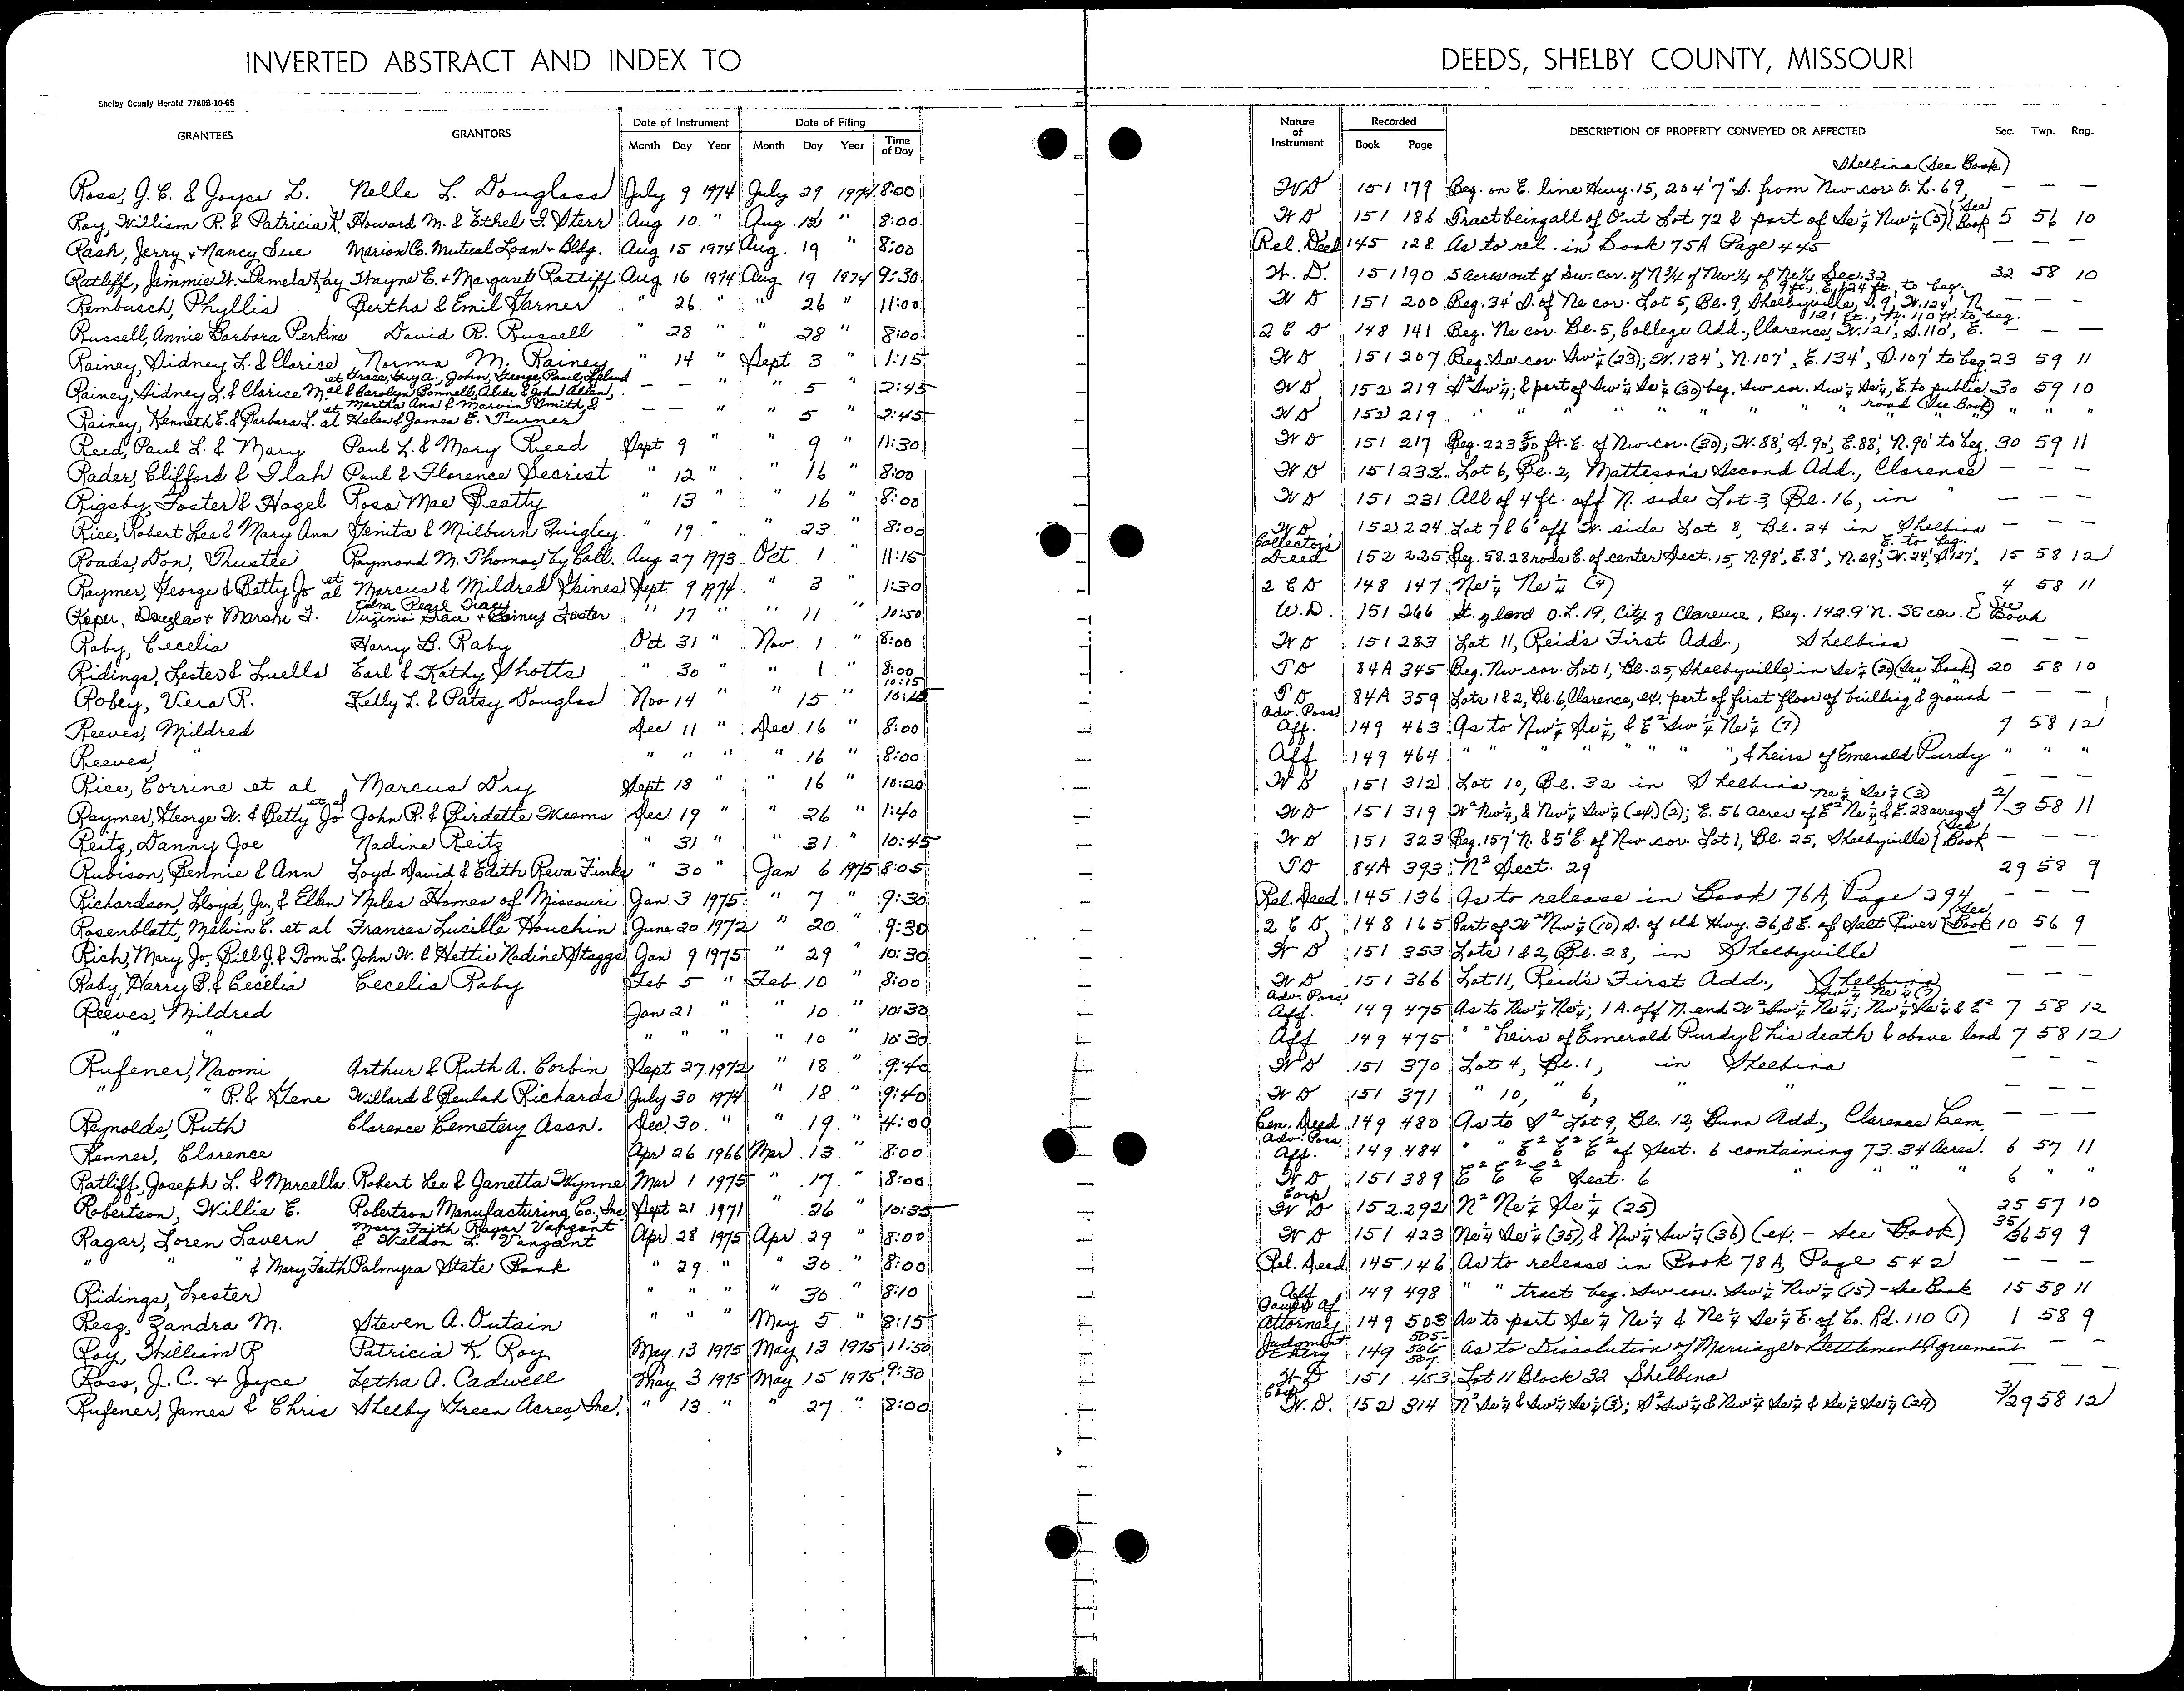 INVERTED ABSTRACT AND INDEX TO DEEDS, SHELBY COUNTY, MISSOURI
Shelby County Herald 7780B-10-65
GRANTEES GRANTORS Date of Instrument Month Day Year Date of Filing Month Day Year Time of Day Nature of Instrument Recorded Book Page DESCRIPTION OF PROPERTY CONVEYED OR AFFECTED Sec. Twp. Rng.
Ross, J. C. & Joyce L. Nelle L. Douglass July 9 1974 July 29 1974 8:00 WD 151 179 Beg. on E. line Hwy. 15, 204'7" S. from Nw cor O. L. 69, Shelbina (See Book) — — —
Roy, William R. & Patricia K. Howard M. & Ethel I. Sterr Aug 10 " Aug 12 " 8:00 WD 151 186 Tract being all of Out Lot 72 & part of Se¼ Nw¼ (5) (See Book 5 56 10
Rash, Jerry + Nancy Sue Marion Co. Mutual Loan + Bldg. Aug 15 1974 Aug. 19 " 8:00 Rel. Deed 145 128 As to rel. in Book 75A Page 445 — — —
Ratliff, Jimmie W. + Pamela Kay Wayne E. + Margaret Ratliff Aug 16 1974 Aug 19 1974 9:30 W. D. 151 190 5 acres out of Sw. cor. of N ¾ of Nw ¼ of Ne ¼ Sec. 32 32 58 10
Rembusch, Phyllis Bertha & Emil Garner " 26 " " 26 " 11:00 WD 151 200 Beg. 34' S. of Ne cor. Lot 5, Bl. 9, Shelbyville, S. 9', W. 124', N. 9 ft., E. 124 ft. to beg. — — —
Russell, Annie Barbara Perkins David R. Russell " 28 " " 28 " 8:00 2 C D 148 141 Beg. Ne cor. Bl. 5, College Add., Clarence, W. 121', S. 110', E. 121 ft., N. 110 ft. to beg. — — —
Rainey, Sidney L. & Clarice Norma M. Rainey " 14 " Sept 3 " 1:15 WD 151 207 Beg. Se cor. Sw¼ (23); W. 134', N. 107', E. 134', S. 107' to beg 23 59 11
Rainey, Sidney L. & Clarice M. et al Grace, Guy A., John, George, Paul, Leland & Carolyn Bonnell, Alice & John Allen, — — " " 5 " 2:45 WD 152 219 S² Sw¼, & part of Sw¼ Se¼ (30) beg. Sw cor. Sw¼ Se¼, E. to public road (See Book) 30 59 10
Rainey, Kenneth E. & Barbara L. et al Martha Ann & Marvin Smith, & Helen & James E. Turner — — " " 5 " 2:45 WD 152 219 " " " " " " " " " " "
Reed, Paul L. & Mary Paul L. & Mary Reed Sept 9 " " 9 " 11:30 WD 151 217 Beg. 223 ft. E. of Nw cor. (30); W. 88', S. 90', E. 88', N. 90' to beg. 30 59 11
Rader, Clifford & Ilah Paul & Florence Secrist " 12 " " 16 " 8:00 WD 151 232 Lot 6, Bl. 2, Matteson's Second Add., Clarence — — —
Rigsby, Foster & Hazel Rosa Mae Beatty " 13 " " 16 " 8:00 WD 151 231 All of 4 ft. off N. side Lot 3, Bl. 16, in " — — —
Rice, Robert Lee & Mary Ann Genita & Milburn Quigley " 19 " " 23 " 8:00 WD 152 224 Lot 7 & 6' off W. side Lot 8, Bl. 24 in Shelbina — — —
Roads, Don, Trustee Raymond M. Thomas by Coll. Aug 27 1973 Oct 1 " 11:15 Collector's Deed 152 225 Beg. 58.28 rods E. of center Sect. 15, N. 98', E. 8', N. 29', W. 24', S. 127', E. to beg. 15 58 12
Raymer, George & Betty Jo et al Marcus & Mildred Gaines Sept 9 1974 " 3 " 1:30 2 C D 148 147 Ne¼ Ne¼ (4) 4 58 11
Roper, Douglas + Marsha J. Edna Pearl Tracy Virginia Grace + Barney Foster " 17 " " 11 " 10:50 W.D. 151 266 St. of land O.L. 19, City of Clarence, Beg. 142.9' N. SE cor. (See Book
Raby, Cecelia Harry B. Raby Oct 31 " Nov 1 " 8:00 WD 151 283 Lot 11, Reid's First Add., Shelbina — — —
Ridings, Lester & Luella Earl & Kathy Shotts " 30 " " 1 " 8:00 TD 84A 345 Beg. Nw cor. Lot 1, Bl. 25, Shelbyville, in Se¼ (20) (See Book) 20 58 10
Robey, Vera R. Kelly L. & Patsy Douglas Nov 14 " " 15 " 10:15 TD 84A 359 Lots 1 & 2, Bl. 6, Clarence, ex. part of first floor of building & ground — — —
Reeves, Mildred Dec 11 " Dec 16 " 8:00 Adv. Poss. Aff. 149 463 As to Nw¼ Se¼, & E² Sw¼ Ne¼ (7) 7 58 12
Reeves, " " " " " 16 " 8:00 Aff 149 464 " " " " " " ", & heirs of Emerald Purdy " " "
Rice, Corrine et al Marcus Dry Sept 18 " " 16 " 10:20 WD 151 312 Lot 10, Bl. 32 in Shelbina — — —
Raymer, George W. & Betty Jo et al John R. & Birdetta Weems Dec 19 " " 26 " 1:40 WD 151 319 W² Nw¼, & Nw¼ Sw¼ (ex.) (2); E. 56 acres of E² Ne¼, & E. 28 acres of Ne¼ Se¼ (3) 2/3 58 11
Reitz, Danny Joe Nadine Reitz " 31 " " 31 " 10:45 WD 151 323 Beg. 157' N. & 5' E. of Nw cor. Lot 1, Bl. 25, Shelbyville (See Book — — —
Rubison, Bennie & Ann Loyd David & Edith Reva Finks " 30 " Jan 6 1975 8:05 TD 84A 393 N² Sect. 29 29 58 9
Richardson, Lloyd, Jr. & Ellen Miles Homes of Missouri Jan 3 1975 " 7 " 9:30 Rel. Deed 145 136 As to release in Book 76A, Page 294 — — —
Rosenblatt, Melvin E. et al Frances Lucille Houchin June 20 1972 " 20 " 9:30 2 C D 148 165 Part of W² Nw¼ (10) S. of old Hwy. 36, & E. of Salt River (See Book 10 56 9
Rich, Mary Jo, Bill J. & Tom L. John W. & Hettie Nadine Staggs Jan 9 1975 " 29 " 10:30 WD 151 353 Lots 1 & 2, Bl. 28, in Shelbyville — — —
Raby, Harry B. & Cecelia Cecelia Raby Feb 5 " Feb 10 " 8:00 WD 151 366 Lot 11, Reid's First Add., Shelbina — — —
Reeves, Mildred Jan 21 " " 10 " 10:30 Adv. Poss. Aff. 149 475 As to Nw¼ Ne¼; 1 A. off N. end W² Sw¼ Ne¼; Nw¼ Se¼ & E² Sw¼ Ne¼ (7) 7 58 12
" " " " " " 10 " 10:30 Aff 149 475 " " heirs of Emerald Purdy & his death & above land 7 58 12
Rufener, Naomi Arthur & Ruth A. Corbin Sept 27 1972 " 18 " 9:40 WD 151 370 Lot 4, Bl. 1, in Shelbina — — —
" " R. & Gene Willard & Beulah Richards July 30 1974 " 18 " 9:40 WD 151 371 " 10, " 6, " " — — —
Reynolds, Ruth Clarence Cemetery Assn. Dec. 30 " " 19 " 4:00 Cem. Deed 149 480 As to S² Lot 9, Bl. 12, Bunn Add., Clarence Cem. — — —
Renner, Clarence Apr 26 1966 Mar 13 " 8:00 Adv. Poss. Aff. 149 484 " " E² E² E² of Sect. 6 containing 73.34 Acres. 6 57 11
Ratliff, Joseph L. & Marcella Robert Lee & Janetta Wynne Mar 1 1975 " 17 " 8:00 WD 151 389 E² E² E² Sect. 6 " 6 " "
Robertson, Willie E. Robertson Manufacturing Co., Inc Sept 21 1971 " 26 " 10:35 Corp WD 152 292 N² Ne¼ Se¼ (25) 25 57 10
Ragar, Loren Lavern Mary Faith Ragar Vangant & Weldon L. Vangant Apr 28 1975 Apr 29 " 8:00 WD 151 423 Ne¼ Se¼ (35), & Nw¼ Sw¼ (36) (ex. - See Book) 35/36 59 9
" " " & Mary Faith Palmyra State Bank " 29 " " 30 " 8:00 Rel. Deed 145 146 As to release in Book 78A, Page 542 — — —
Ridings, Lester " " " " 30 " 8:10 Aff 149 498 " " tract beg. Sw cor. Sw¼ Nw¼ (15) - See Book 15 58 11
Resz, Zandra M. Steven A. Outain " " " May 5 " 8:15 Power of Attorney 149 503 As to part Se¼ Ne¼ & Ne¼ Se¼ E. of Co. Rd. 110 (1) 1 58 9
Roy, William R Patricia K. Roy May 13 1975 May 13 1975 11:50 Judgment Entry 149 505- 506 507. As to Dissolution of Marriage & Settlement Agreement — —
Ross, J. C. + Joyce Letha A. Cadwell May 3 1975 May 15 1975 9:30 WD 151 453 Lot 11 Block 32 Shelbina — — —
Rufener, James & Chris Shelby Green Acres, Inc. " 13 " " 27 " 8:00 Corp W. D. 152 314 N² Se¼ & Sw¼ Se¼ (3); S² Sw¼ & Nw¼ Se¼ & Se¼ Se¼ (29) 3/29 58 12